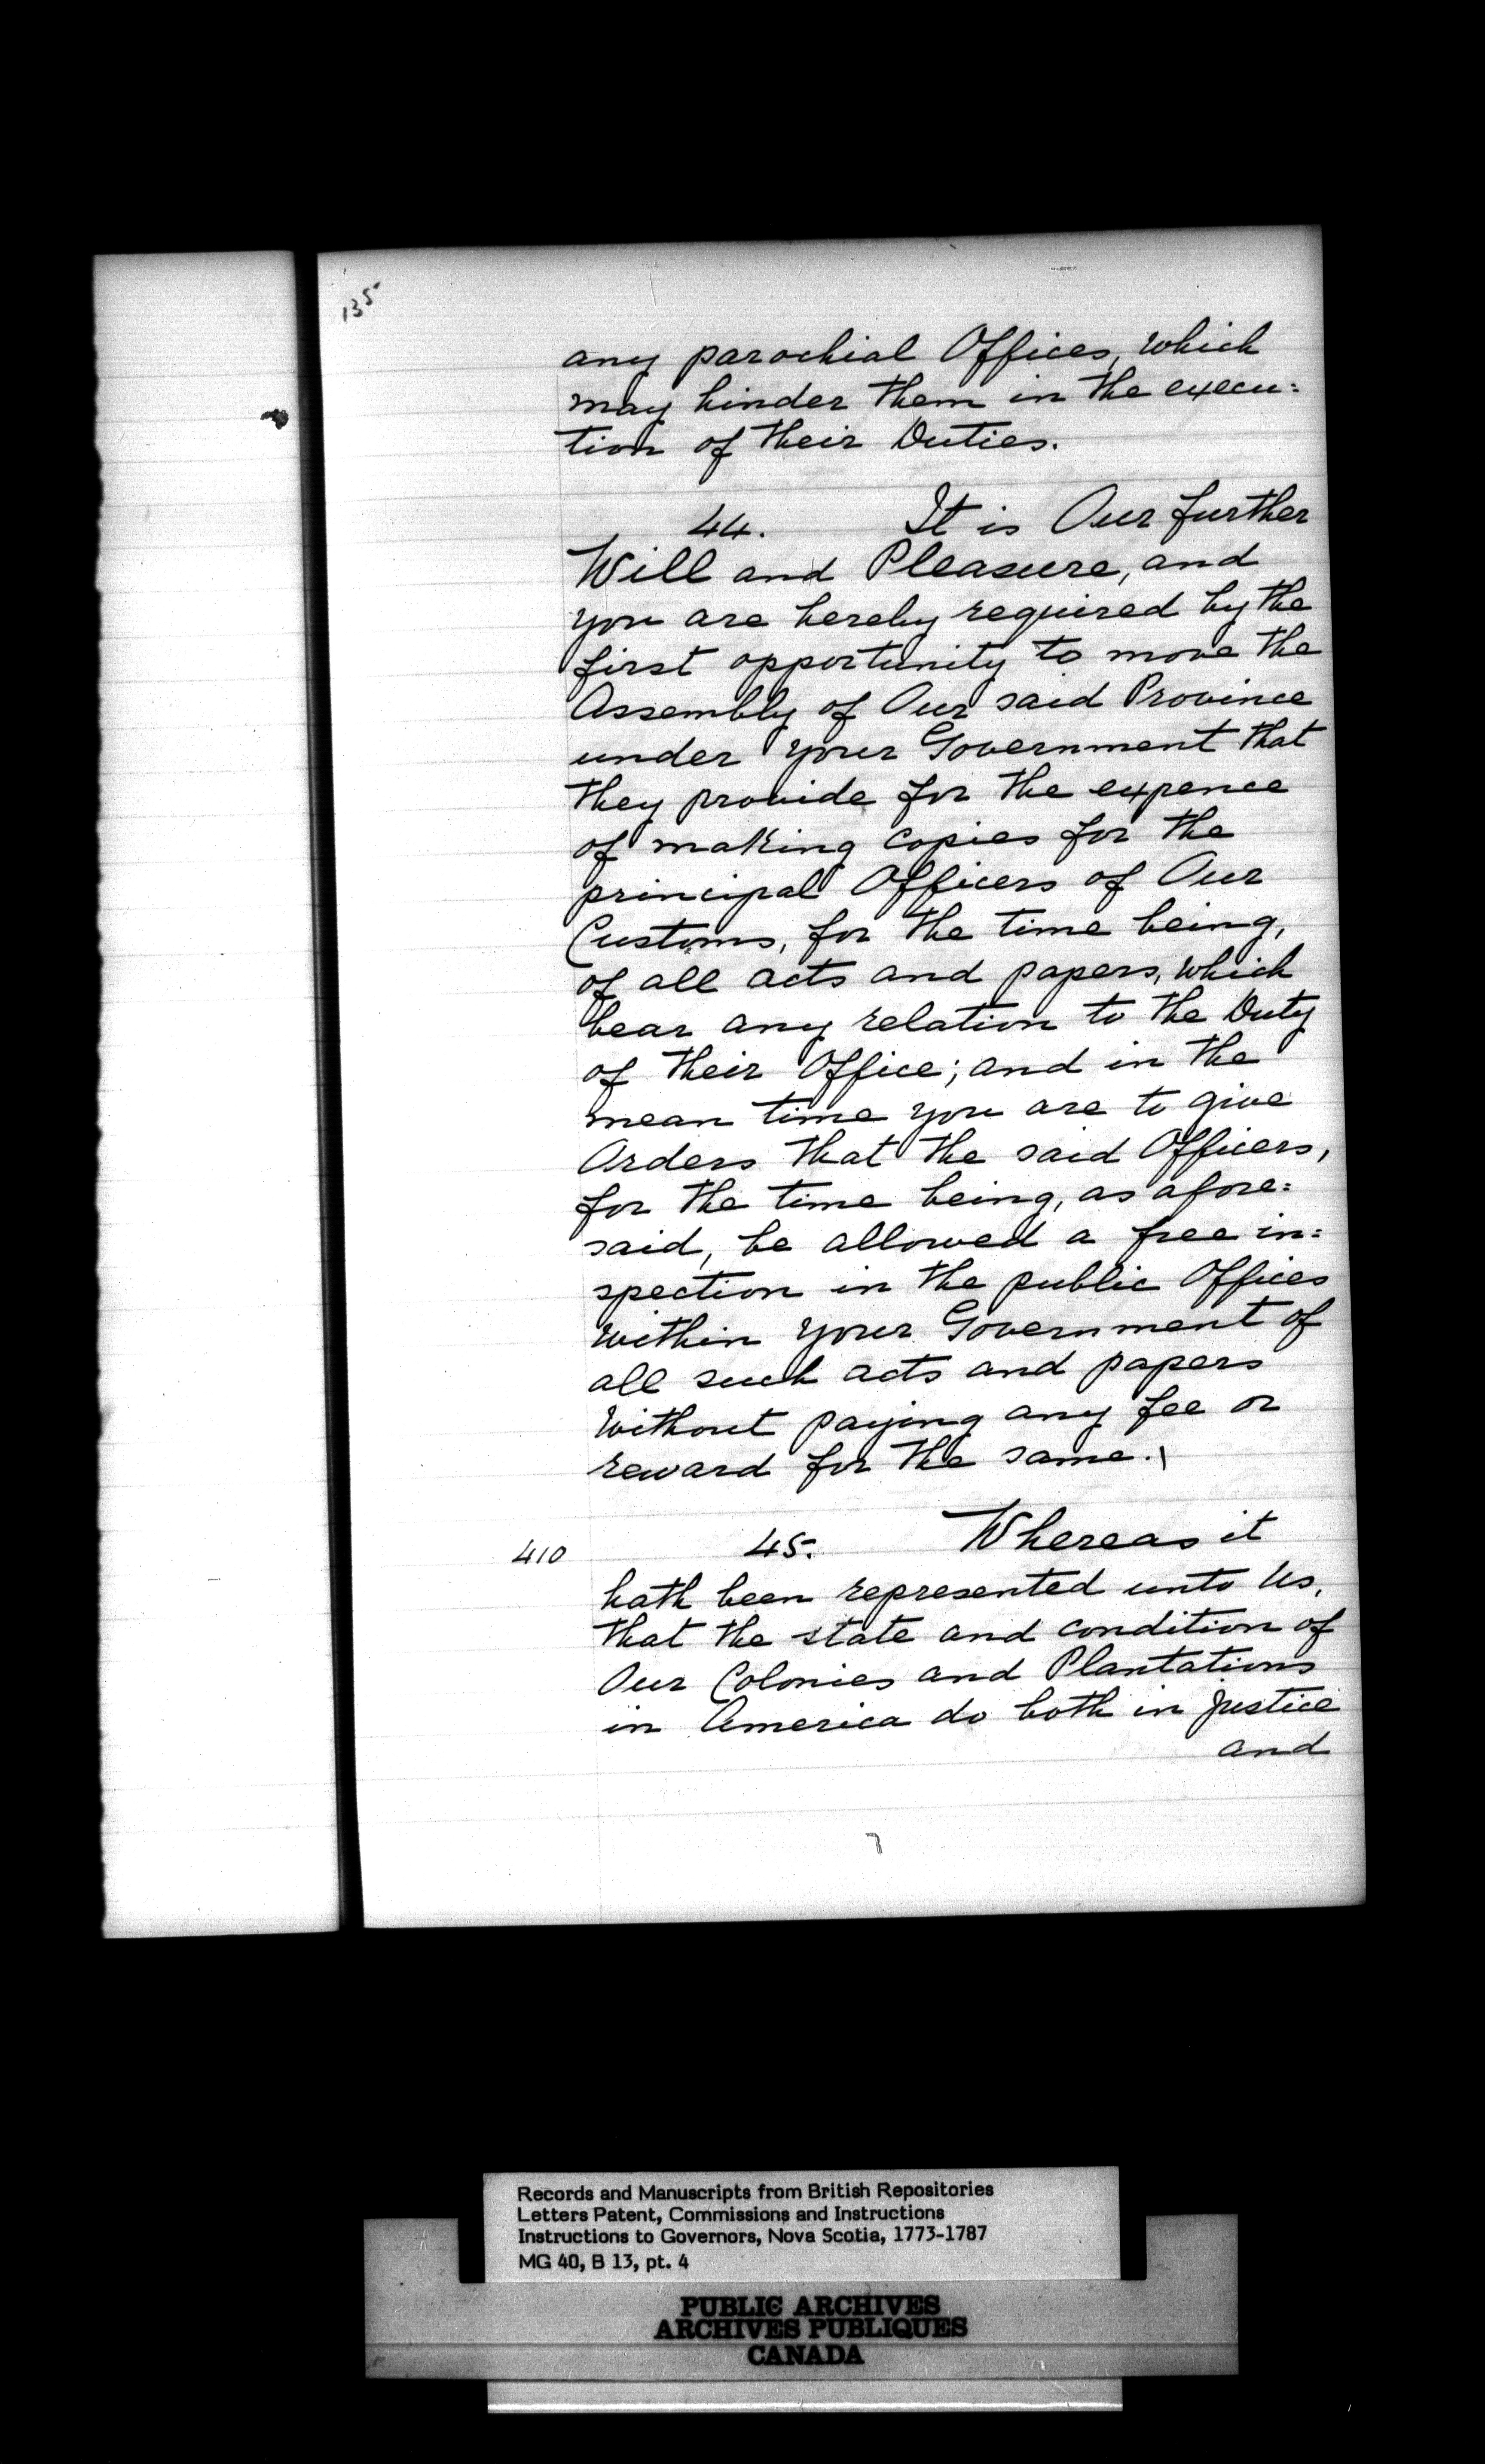 135
any parochial Offices, which
may hinder them in the execu:
tion of their Duties.
44. It is Our further
Will and Pleasure, and
you are hereby required by the
first opportunity to move the
Assembly of Our said Province
under your Government that
they provide for the expence
of making copies for the
principal Officers of Our
Customs, for the time being,
of all acts and papers, which
bear any relation to the Duty
of their Office; and in the
mean time you are to give
Orders that the said Officers,
for the time being, as afore:
said, be allowed a free in:
spection in the public Offices
within your Government of
all such acts and papers
without paying any fee or
reward for the same.
410 45. Whereas it
hath been represented unto Us,
that the state and condition of
Our Colonies and Plantations
in America do both in justice
and
Records and Manuscripts from British Repositories
Letters Patent, Commissions and Instructions
Instructions to Governors, Nova Scotia, 1773-1787
MG 40, B 13, pt. 4
PUBLIC ARCHIVES
ARCHIVES PUBLIQUES
CANADA